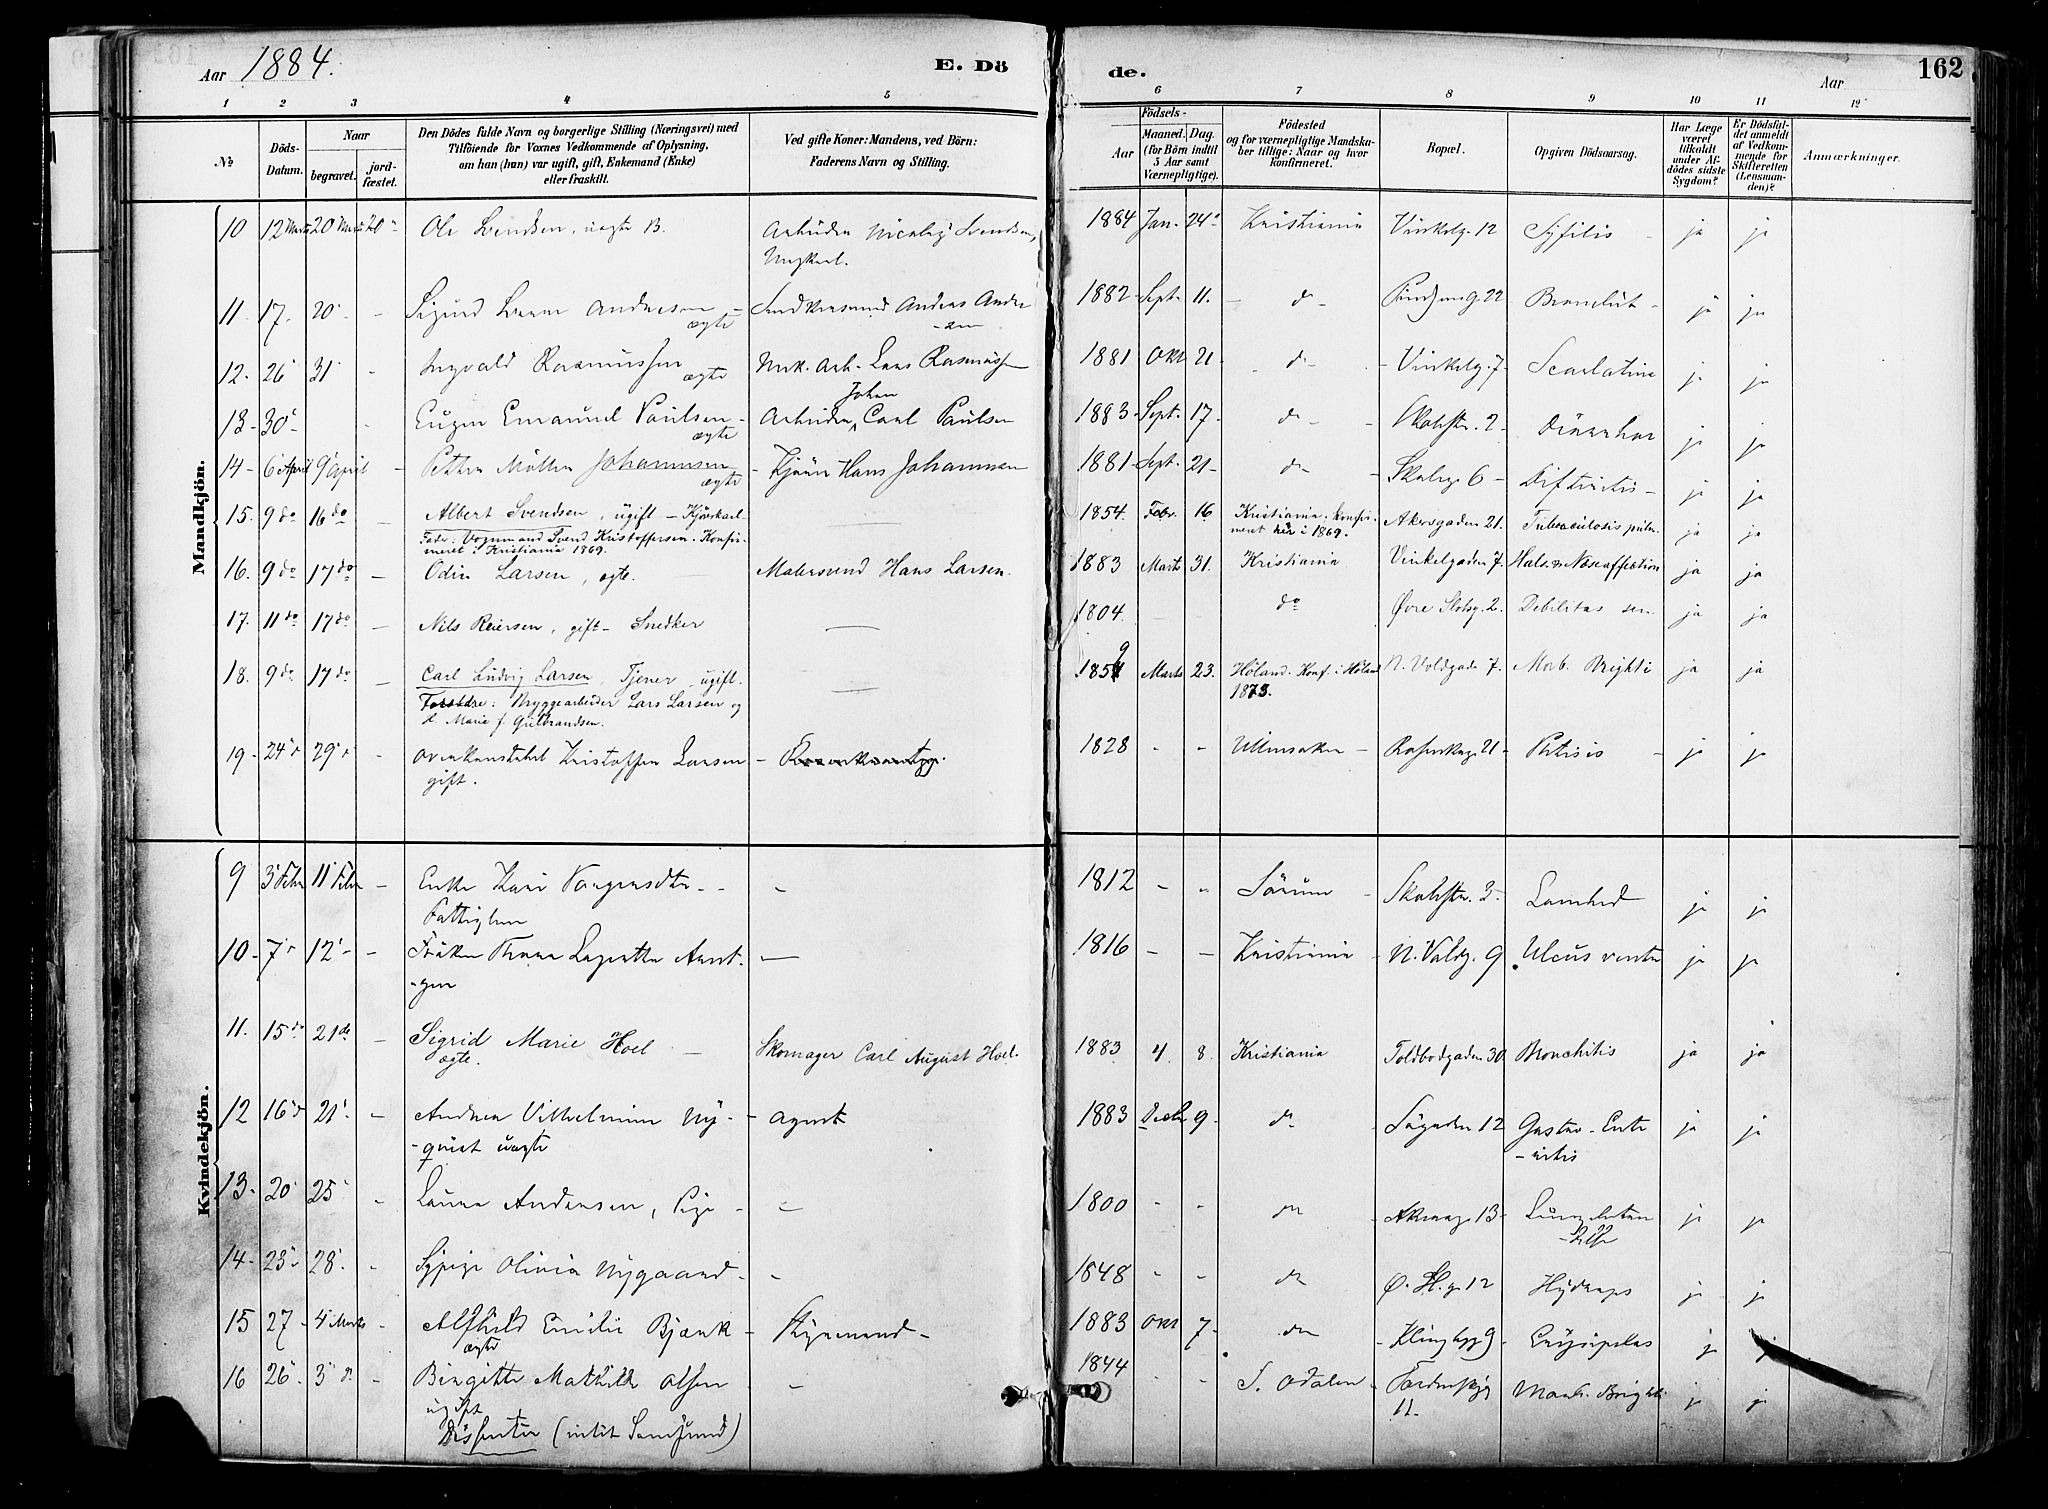 Aar 1884.
E. Dö
de.
Aar
162
1 2 3 4 5 6 7 8 9 10 11 12
No
Döds-Datum.
Naar
begravet.
jord-fæstet.
Den Dödes fulde Navn og borgerlige Stilling (Næringsvei) med
Tilföiende for Voxnes Vedkommende af Oplysning,
om han (hun) var ugift, gift, Enkemand (Enke)
eller fraskilt.
Ved gifte Koner: Mandens, ved Börn:
Faderens Navn og Stilling.
Födsels-
Aar
Maaned. Dag.
(for Börn indtil
5 Aar samt
Værnepligtige).
Födested
og for værnepligtige Mandska-
ber tillige: Naar og hvor
konfirmeret.
Bopæl.
Opgiven Dödsaarsag.
Har Læge
været
tilkaldt
under Af-
dödes sidste
Sygdom?
Er Dödsfal-
det anmeldt
af Vedkom-
mende for
Skifteretten
(Lensman-
den)?
Anmærkninger.
Mandkjön.
10 12 Marts 20 Marts 20 Ole Svendsen, uægte B. Arbeider Nicolay Svendsen, Ungkarl. 1884 Jan. 24 Kristiania Vinkelg. 12 Syfilis ja ja
11. 17. 20 Sigurd Andresen ægte Anders Andresen 1882 Sept. 11. do 22 Bronchit ja ja
12. 26 31 Ingvald Rasmussen ægte Lars Rasmussen 1881 Okt 21 do Vinkelg. 7 Scarlatina ja ja
13 30 Eugen Emanuel Paulsen ægte Arbeider Johan Carl Paulsen 1883 Sept. 17 do 2 ja ja
14 6 April 9 April Petter Möller Johannesen ægte Hans Johannesen 1881 Sept. 21 do 6 Difteritis ja ja
15. 9 do 16 do Albert Svendsen, ugift – Kjørekarl
Fader: Vognmand Svend Kristoffersen. Konfir-
meret i Kristiania 1869. 1854. Febr. 16 Kristiania. Konfir-
meret her i 1869. Akersgaden 21. Tuberculosis pulm. ja ja
16. 9 do 17 do Odin Larsen, ægte. Malersvend Hans Larsen. 1883 Marts 31. Kristiania Vinkelgaden 7. Hals og Næseaffection ja ja
17. 11 do 17 do Nils Reiersen, gift – Snedker 1804. do Øvre Slotsg. 2. Debilitas sen. ja ja
18. 9 do 17 do Carl Ludvig Larsen, Tjener, ugift.
Forældre: Bryggearbeider Lars Larsen og
d. Marie f. Gulbrandsen. 1859 Marts 23. Höland. Konf. i Höland
1873. N. Voldgade 7. Morb. Brighti ja ja
19 24 29 Kristoffer Larsen
gift. 1828 Ullensaker 21 Phtisis ja ja
Kvindekjön.
9 3 Febr 11 Febr Enke Kari
Fattiglem 1812 Sörum 3 ja ja
10 7 12 Fröken 1816 Kristiania N. Voldg. 9 Ulcus ventr ja ja
11. 15 do 21 do Sigrid Marie Hoel
ægte. Skomager Carl August Hoel. 1883 4 8. Kristiania Toldbodgaden 30. Bronchitis ja ja
12 16 21 Andrea Vilhelmine Ny-
-quist uægte Agent 1883 Decbr 9 do Søgaden 12 Gastro-Ente
-ritis ja ja
13 20 25 Laura Andersen, Pige 1800 do 13 ja ja
14 23 28 Sypige Olivia Nygaard 1848 do Ø. Sl.g. 12 Hydrops ja ja
15 27 4 Marts Alfhild Emilie Bjønk
ægte Styrmand 1883 Okt 7 do 9 Erysipelas ja ja
16 26 3 Birgitte Mathilde Olsen
ugift
Dissenter 1844 S. Odalen 11. Morb. Brighti ja ja